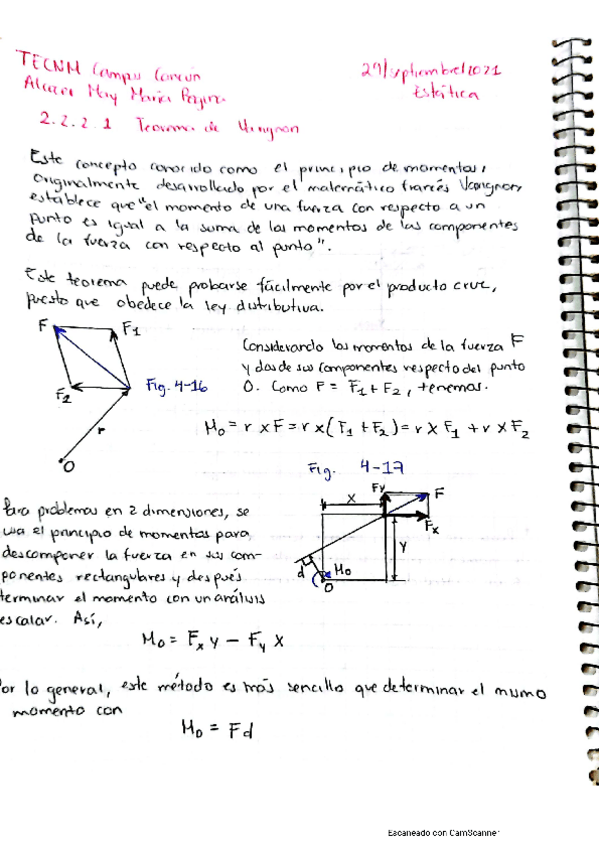 TECNM Campus Cancún
29/septiembre/2021
Estática
2.2.2.1 Teorema de Varignon
Este concepto conocido como el principio de momentos,
originalmente desarrollado por el matemático francés Varignon
establece que "el momento de una fuerza con respecto a un
punto es igual a la suma de los momentos de las componentes
de la fuerza con respecto al punto".
Este teorema puede probarse fácilmente por el producto cruz,
puesto que obedece la ley distributiva.
F F1
F2
r
O
Fig. 4-16
Considerando los momentos de la fuerza F
y dos de sus componentes respecto del punto
O. Como F = F1 + F2, tenemos.
Mo = r x F = r x (F1 + F2) = r x F1 + r x F2
Fig. 4-17
Fy F
x
Fx
y
d Mo
O
Para problemas en 2 dimensiones, se
usa el principio de momentos para
descomponer la fuerza en sus com-
ponentes rectangulares y después
terminar el momento con un análisis
escalar. Así,
Mo = Fx y - Fy x
or lo general, este método es más sencillo que determinar el mismo
momento con
Mo = Fd
Escaneado con CamScanner